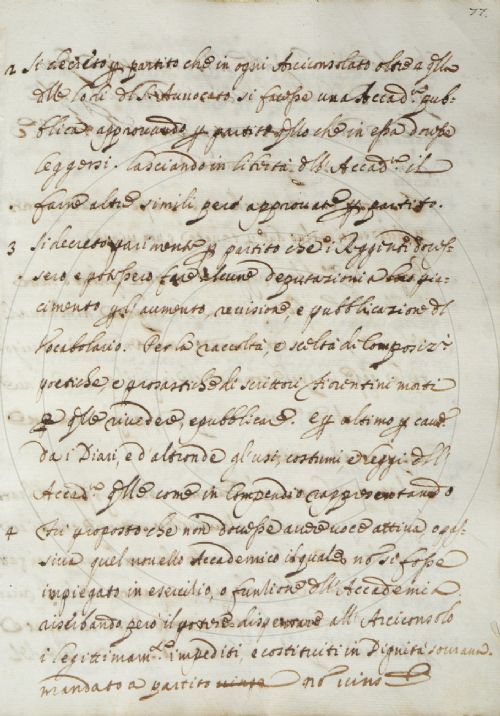 77.
2 Si decretò p partito che in ogni Arciconsolato oltre a qlla
dlle lodi dl Sto Auuocato si facesse una Accad.ca pub-
blica approuando p partito qllo che in essa douesse
leggersi. lasciando in libertà dll' Accad.co il
farne altre simili però approuate p partito.
3 Si decretò parimente p partito che i Reggenti doues-
sero, e potessero fare alcune deputazioni a piacimento
p l' aumento, reuisione, e pubblicazione dl
Vocabolario. Per la raccolta, e scelta di Composiz.i
poetiche, e prosastiche di scrittori fiorentini morti
p qlle riuedere, e pubblicare. e p ultimo p cauar
da i Diari, e d' altronde gl' usi, costumi e leggi dll'
Accad.a qlle come in Compendio rappresentando
4 Fu proposto che non douesse auere uoce attiua, o pas-
siua quel nouello Accademico il quale no si fosse
impiegato in esercizio, o funzione dll' Accademia
riserbando però il potere dispensare all' Arciconsolo
i legittimam.te impediti, e costituiti in Dignità sourana.
mandato a partito uinto no uinto